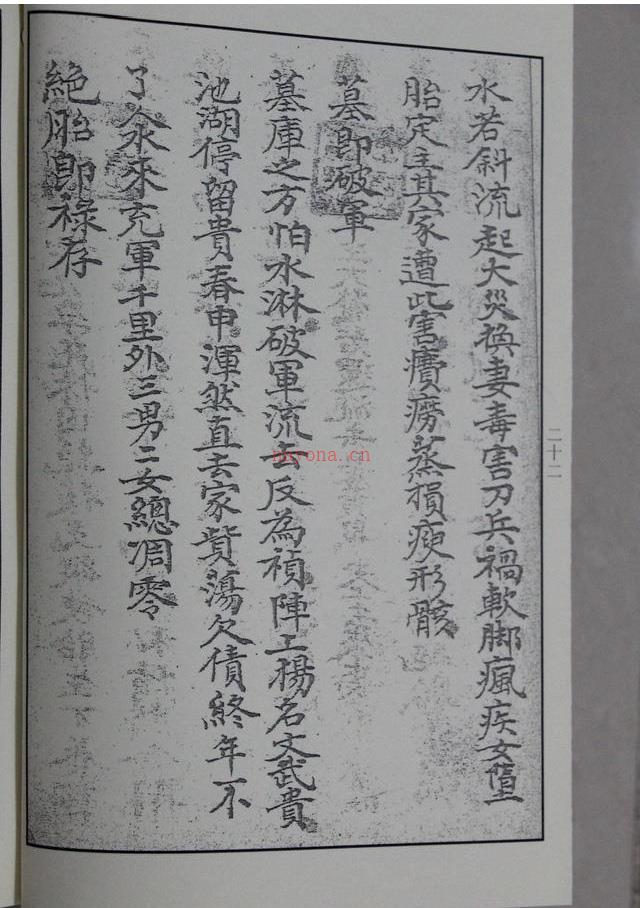 水若斜流起大災換妻毒害刀兵禍軟脚瘋疾女墮
胎定主其家遭此害癀癆蒸損瘐形骸
墓即破軍
墓庫之方怕水淋破軍流去反為禎陣上楊名文武貴
池湖停留貴春申渾然直去家貲蕩欠債終年不
了氽來充軍千里外三男二女總凋零
絕胎即祿存
二十二
nhyona.cn